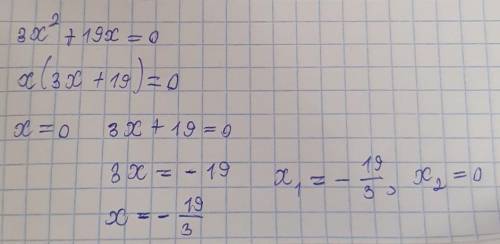 3x² + 19x = 0
x(3x + 19) = 0
x = 0 3x + 19 = 0
3x = - 19
x = - 19/3
x₁ = - 19/3, x₂ = 0